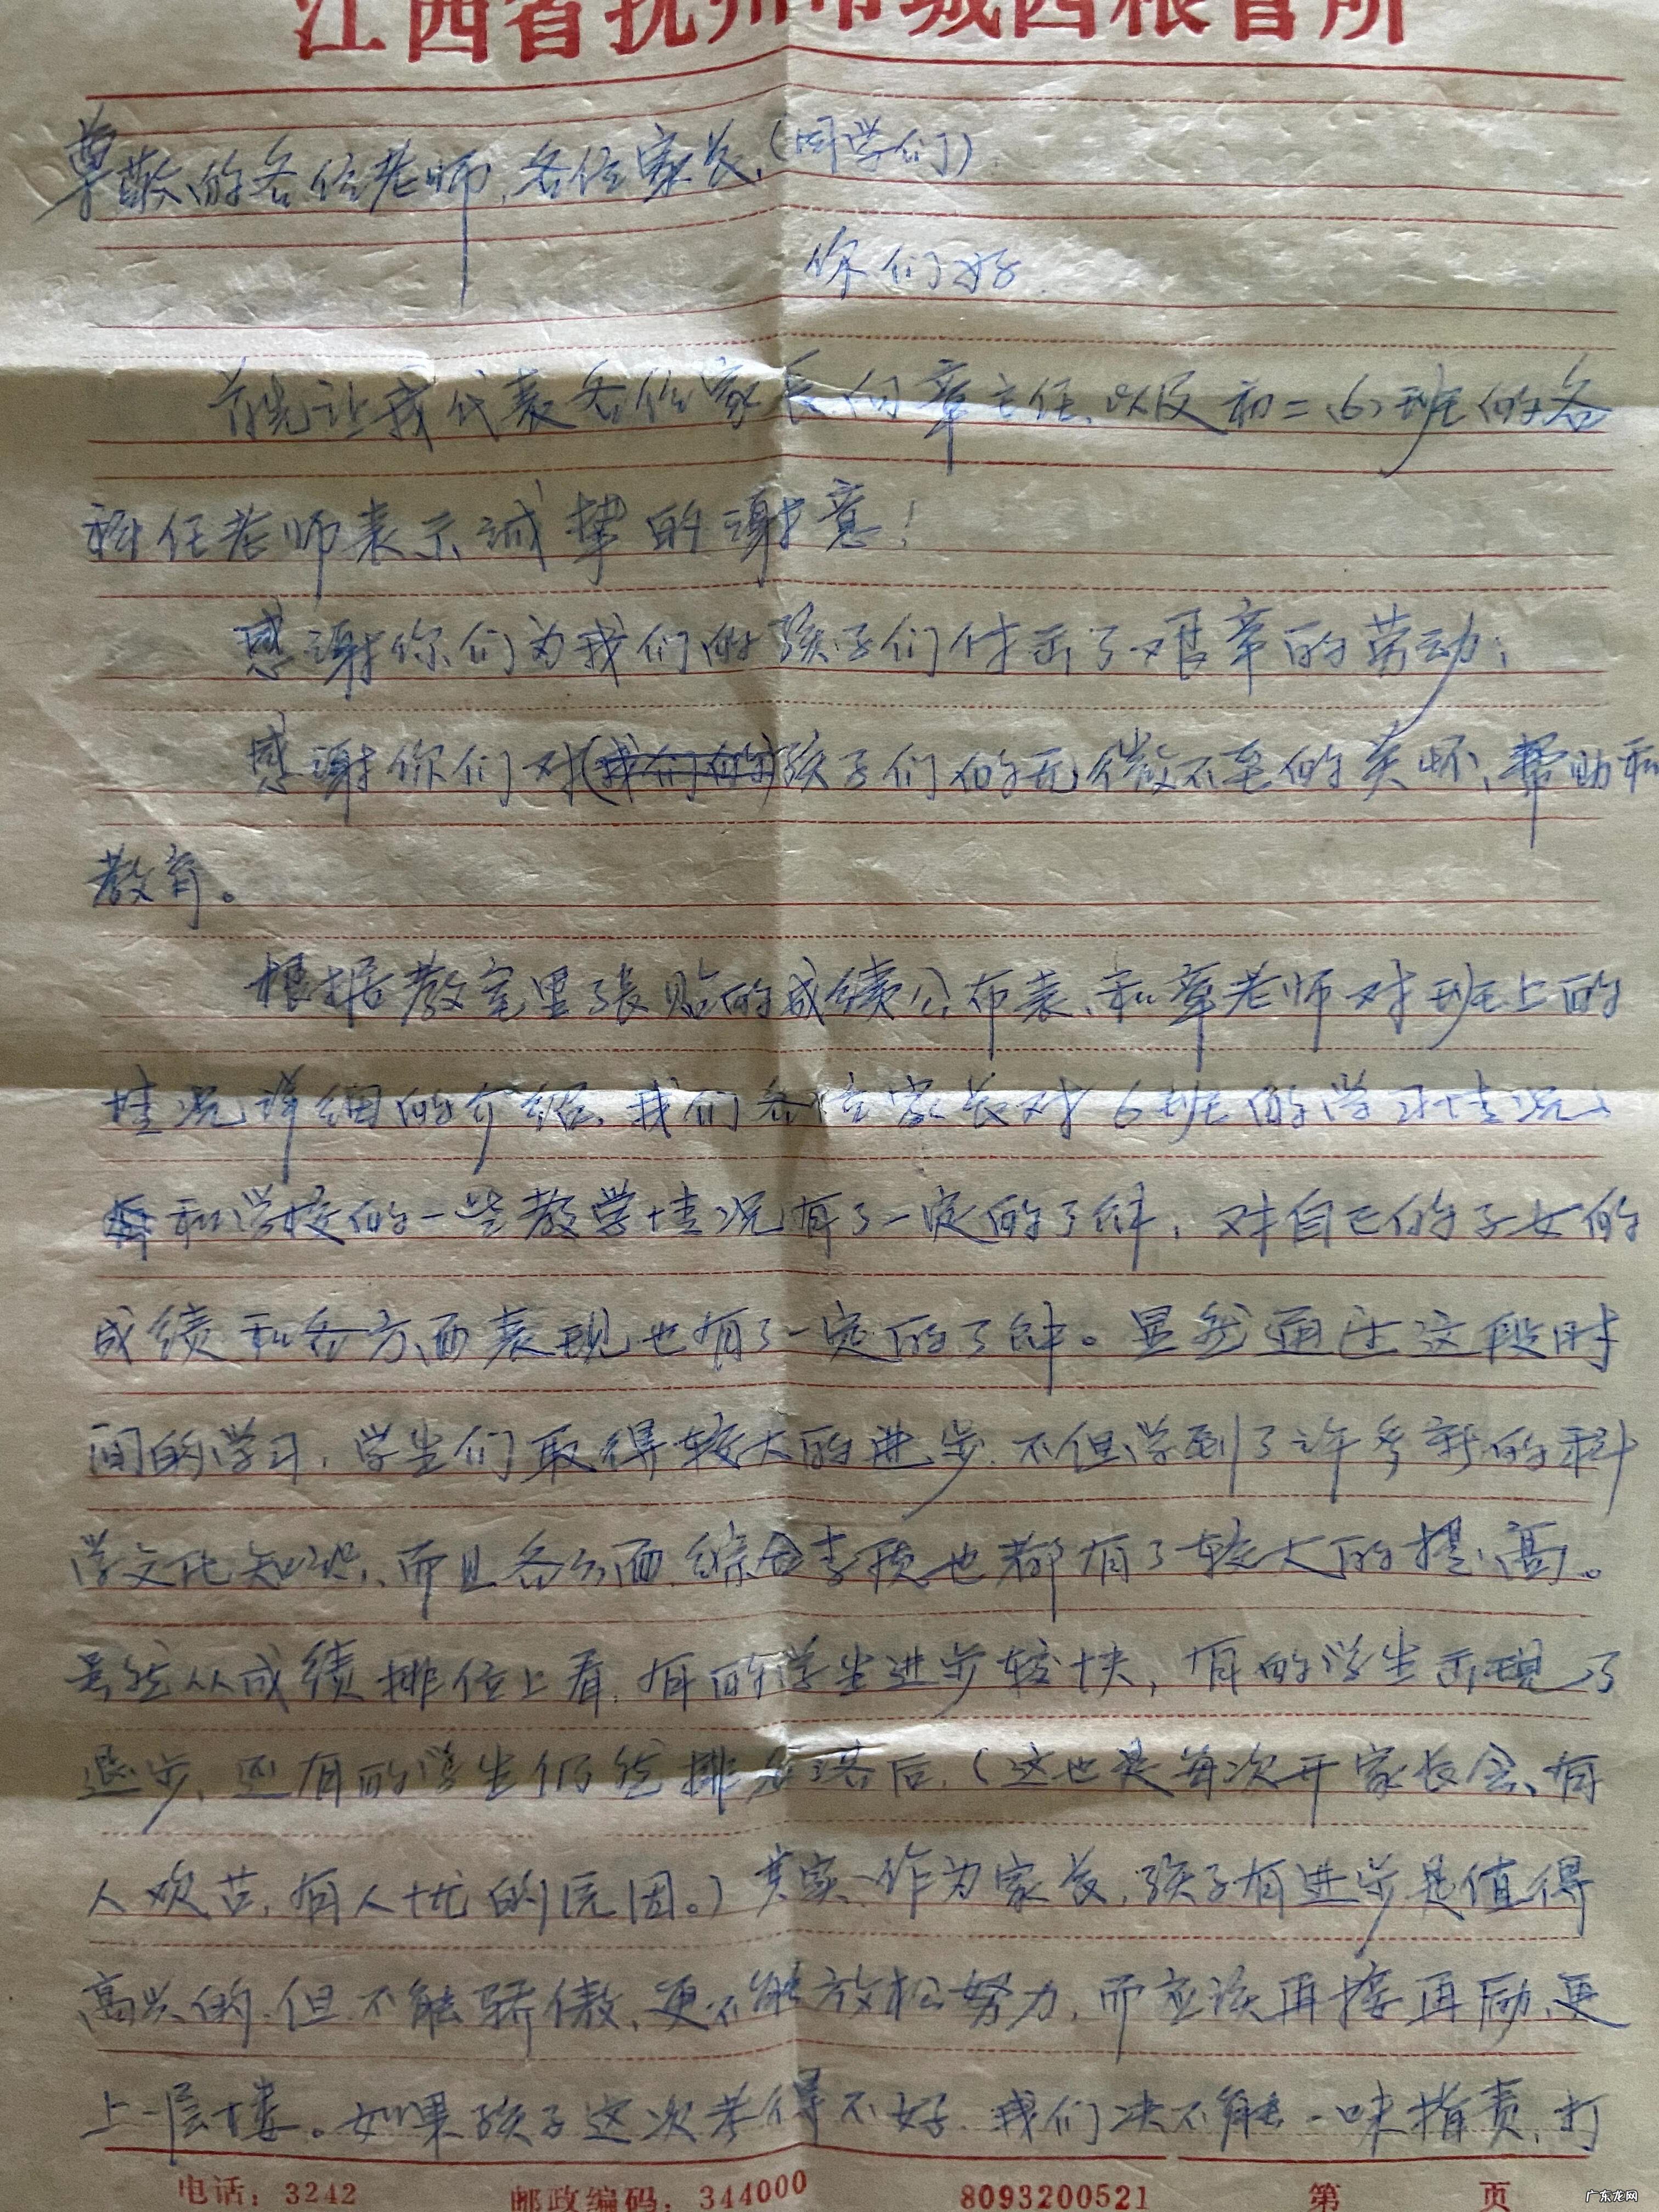 江西省抚州市城西粮管所
尊敬的各位老师,各位家长,(同学们)
你们好.
首先让我代表各位家长向章主任、以及初二(6)班的各
科任老师表示诚挚的谢意!
感谢你们为我们的孩子们付出了艰辛的劳动;
感谢你们对(我们的)孩子们的无微不至的关怀、帮助和
教育。
根据教室里张贴的成绩公布表、和章老师对班上的
情况详细的介绍,我们各位家长对6班的学习情况、
和学校的一些教学情况有了一定的了解,对自己的子女的
成绩和各方面表现也有了一定的了解。显然通过这段时
间的学习,学生们取得较大的进步.不但学到了许多新的科
学文化知识、而且各方面综合素质也都有了较大的提高。
虽然从成绩排位上看,有的学生进步较快,有的学生出现了
退步、还有的学生仍然排名落后,(这也是每次开家长会、有
人欢喜,有人忧的原因。)其实、作为家长,孩子有进步是值得
高兴的.但不能骄傲、更不能放松努力,而应该再接再励、更
上一层楼。如果孩子这次考得不好.我们决不能一味指责,打
电话:3242 邮政编码:344000 8093200521 第 页
广东龙网